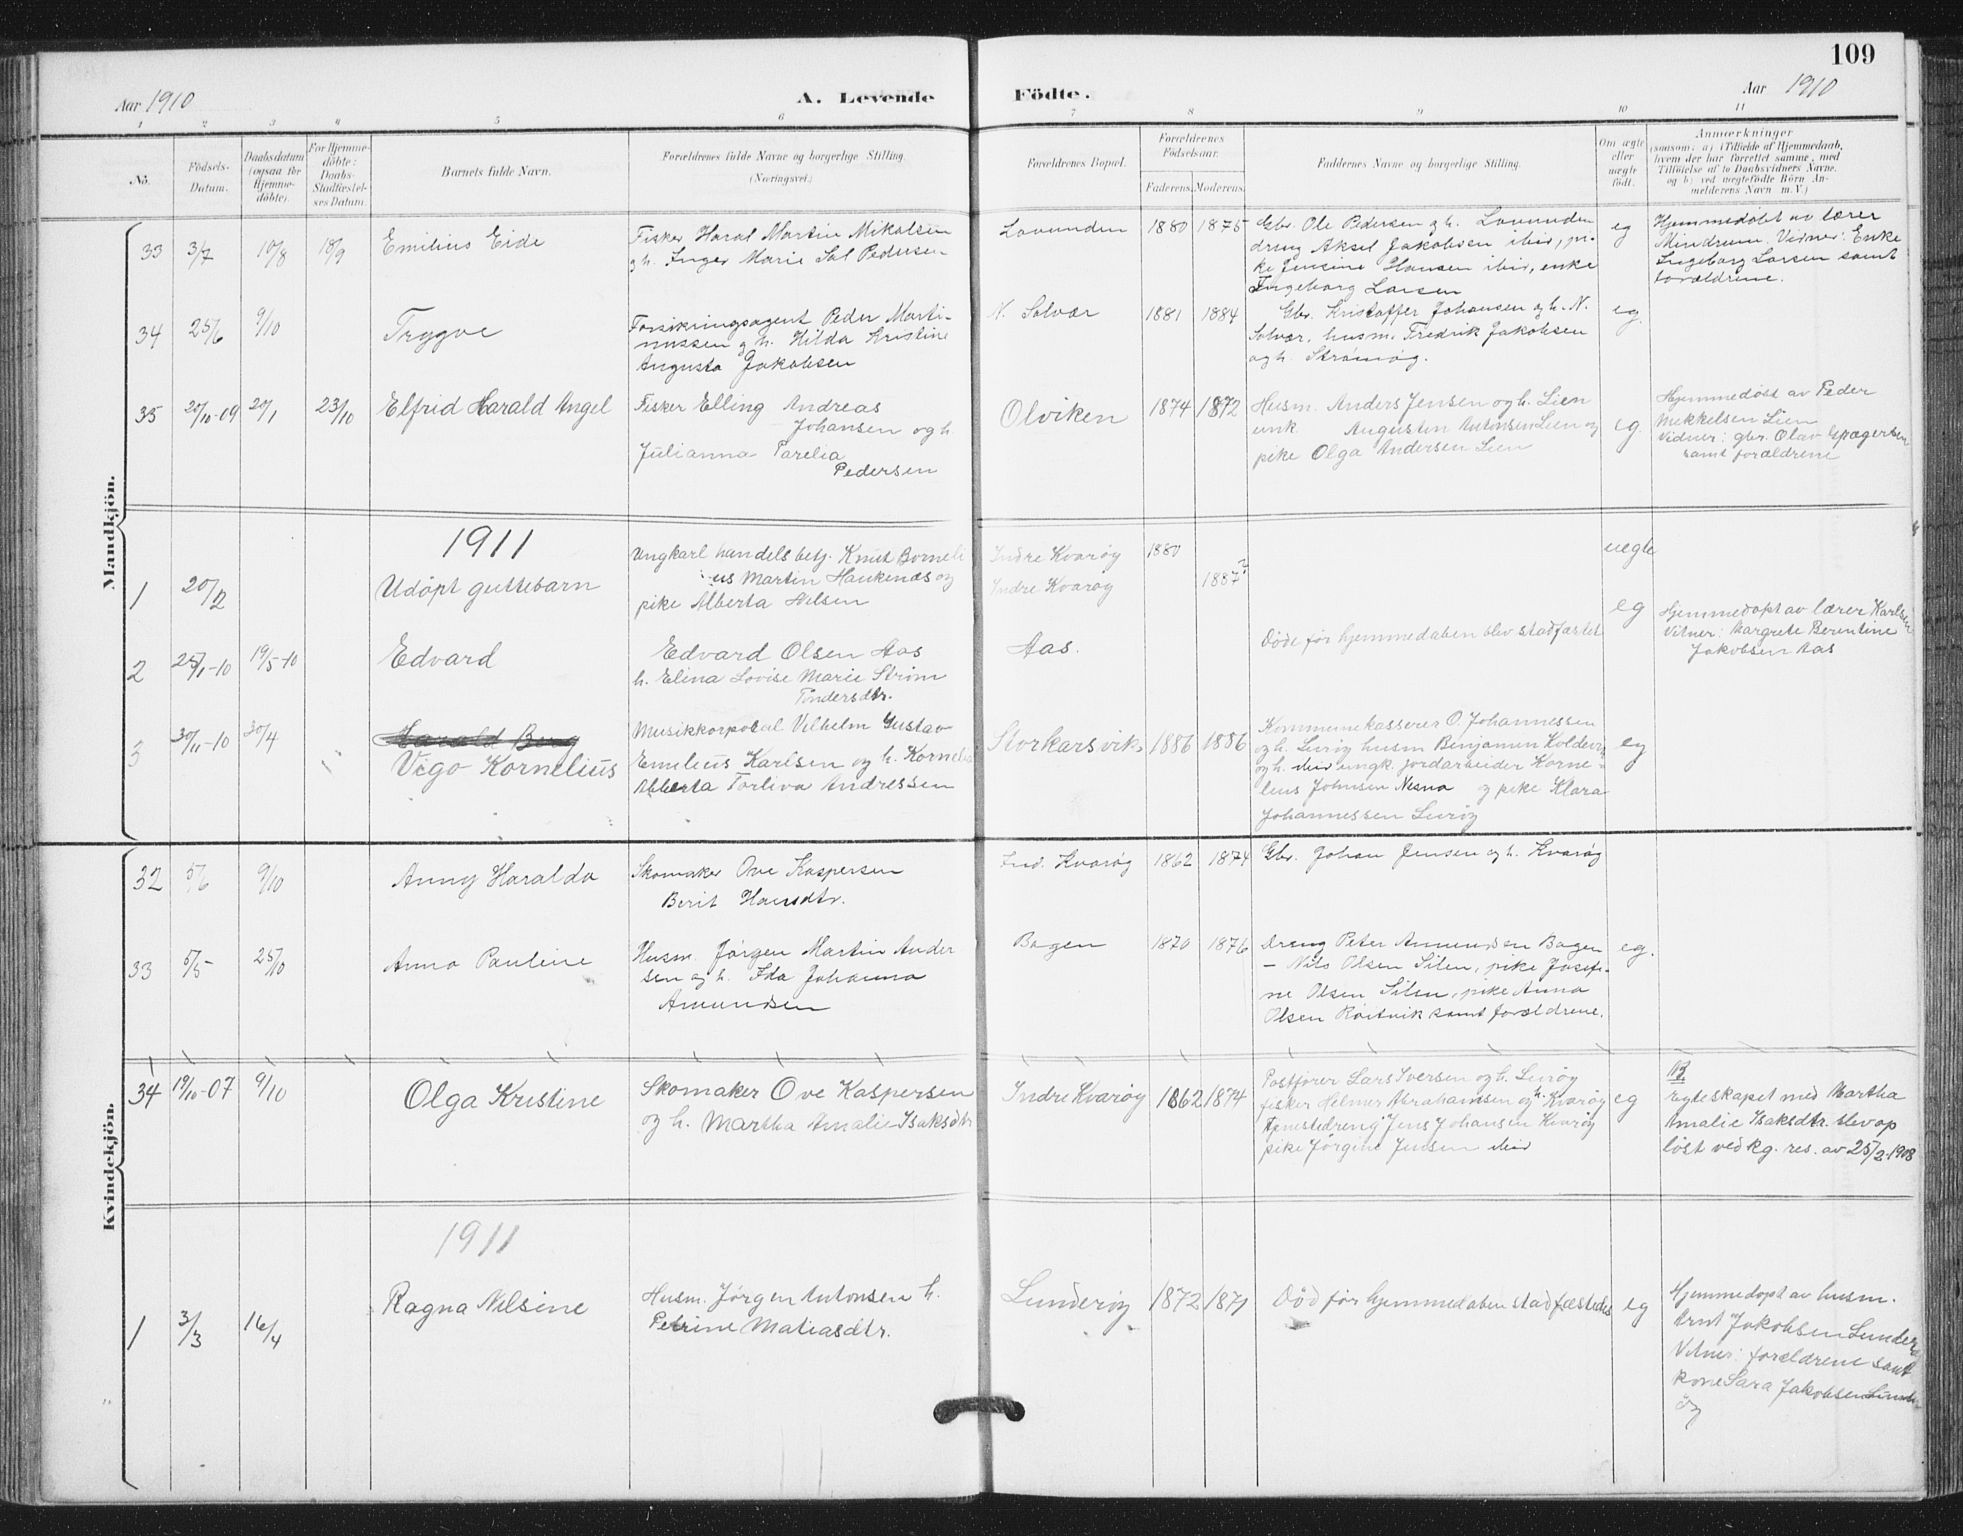 109
Aar 1910
A. Levende Födte.
Aar 1910
1 2 3 4 5 6 7 8 9 10 11
No.
Födsels-Datum.
Daabsdatum (ogsaa for Hjemme-döbte).
For Hjemme-döbte: Daabs-Stadfæstel-ses Datum.
Barnets fulde Navn.
Forældrenes fulde Navne og borgerlige Stilling. (Næringsvei.)
Forældrenes Bopæl.
Forældrenes Födselsaar.
Faderens. Moderens.
Faddernes Navne og borgerlige Stilling.
Om ægte eller uægte födt.
Anmærkninger
(saasom: a) i Tilfælde af Hjemmedaab,
hvem der har forrettet samme, med
Tilföielse af to Daabsvidners Navne,
og b) ved uægtefödte Börn An-
melderens Navn m. V.)
Mandkjön.
33 3/7 10/8 18/9 Emilius Eide
Fisker Haral Martin Mikalsen
og h. Inger Marie Sal Pedersen
Lovunden 1880 1875
Gbr. Ole Pedersen og h. Lovunden
dreng Aksel Jakobsen ibid, pi-
ke Jensine Hansen ibid, enke
Ingeborg Larsen
eg
Hjemmedøbt av lærer
Mindrum. Vidner: Enke
Ingeborg Larsen samt
forældrene.
34 25/6 9/10 Trygve
Forsikringsagent Peder Marti-
nussen og h. Hilda Kristine
Augusta Jakobsen
N. Solvær 1881 1884
Gbr. Kristoffer Johansen og h. N.
Solvær, husm. Fredrik Jakobsen
og h. Strømøy.
eg.
35 20/10-09 20/1 23/10 Elfrid Harald Angel
Fisker Elling Andreas
Johansen og h.
Julianna Parelia
Pedersen
Olviken 1874 1872
Husm. Anders Jensen og h. Lien
unk. Augustin Antonsen Lien og
pike Olga Andersen Lien
eg.
Hjemmedøbt av Peder
Mikkelsen Lien
Vidner: gbr. Olav
samt forældrene
1911
1 20/2 Udøpt guttebarn
Ungkarl handelsbetj. Knut Korneli
us Martin Haukenæs og
pike Alberta Nilsen
Indre Kvarøy 1880
Indre Kvarøy 1887?
uegte
2 25/1-10 19/5-10 Edvard
Edvard Olsen Aas
h. Elina Lovise Marie Strøm
Tindersdtr.
Aas.
Døde før hjemmedaben blev stadfæstet
eg
Hjemmedøpt av lærer Karlsen
Vitner: Margrete Berentine
Jakobsen Aas
3 30/11-10 30/4 Harald Berg
Vigo Kornelius
Musikkorporal Vilhelm Gustav
Emelius Karlsen og h. Kornelia
Alberta Torliva Andressen
Storkarsvik 1886 1886
Kommunekasserer O. Johannessen
og h. Lurøy husm Benjamin
og h. ibid ungk. jordarbeider Korne-
lius Johnsen Nesna og pike Klara
Johannessen Lurøy
eg
Kvindekjön.
32 5/6 9/10 Anny Haralda
Skomaker Ove Kaspersen
Berit Hansdtr.
Ind. Kvarøy 1862 1874
Gbr. Johan Jensen og h. Kvarøy
33 5/5 25/10 Anna Pauline
Husm. Jørgen Martin Ander
sen og h. Ida Johanna
Amundsen
Bogen 1870 1876
Dreng Peter Amundsen Bogen
- Nils Olsen Silen, pike Josefi-
ne Olsen Silen, pike Anna
Olsen Røitvik samt forældrene.
eg.
34 19/10-07 9/10 Olga Kristine
Skomaker Ove Kaspersen
og h. Martha Amalie Isaksdtr
Indre Kvarøy 1862 1874
Postfører Lars Iversen og h. Lurøy
fisker Helmer Abrahamsen og h. Kvarøy
Tjenestedreng Jens Johansen Kvarøy
pike Jørgine Jensen ibid
eg
NB
Egteskapet med Martha
Amalie Isaksdtr. blev op
løst ved kg. res. av 25/2-1908
1911
1 3/3 16/4 Ragna Nilsine
Husm. Jørgen Antonsen h.
Petrine Matiasdtr.
Lunderøy 1872 1871
Død før hjemmedaben stadfæstedes
eg
Hjemmedøpt av husm.
Arnt Jakobsen Lunderø
Vitner: forældrene samt
kone Sara Jakobsen Lunder-
øy